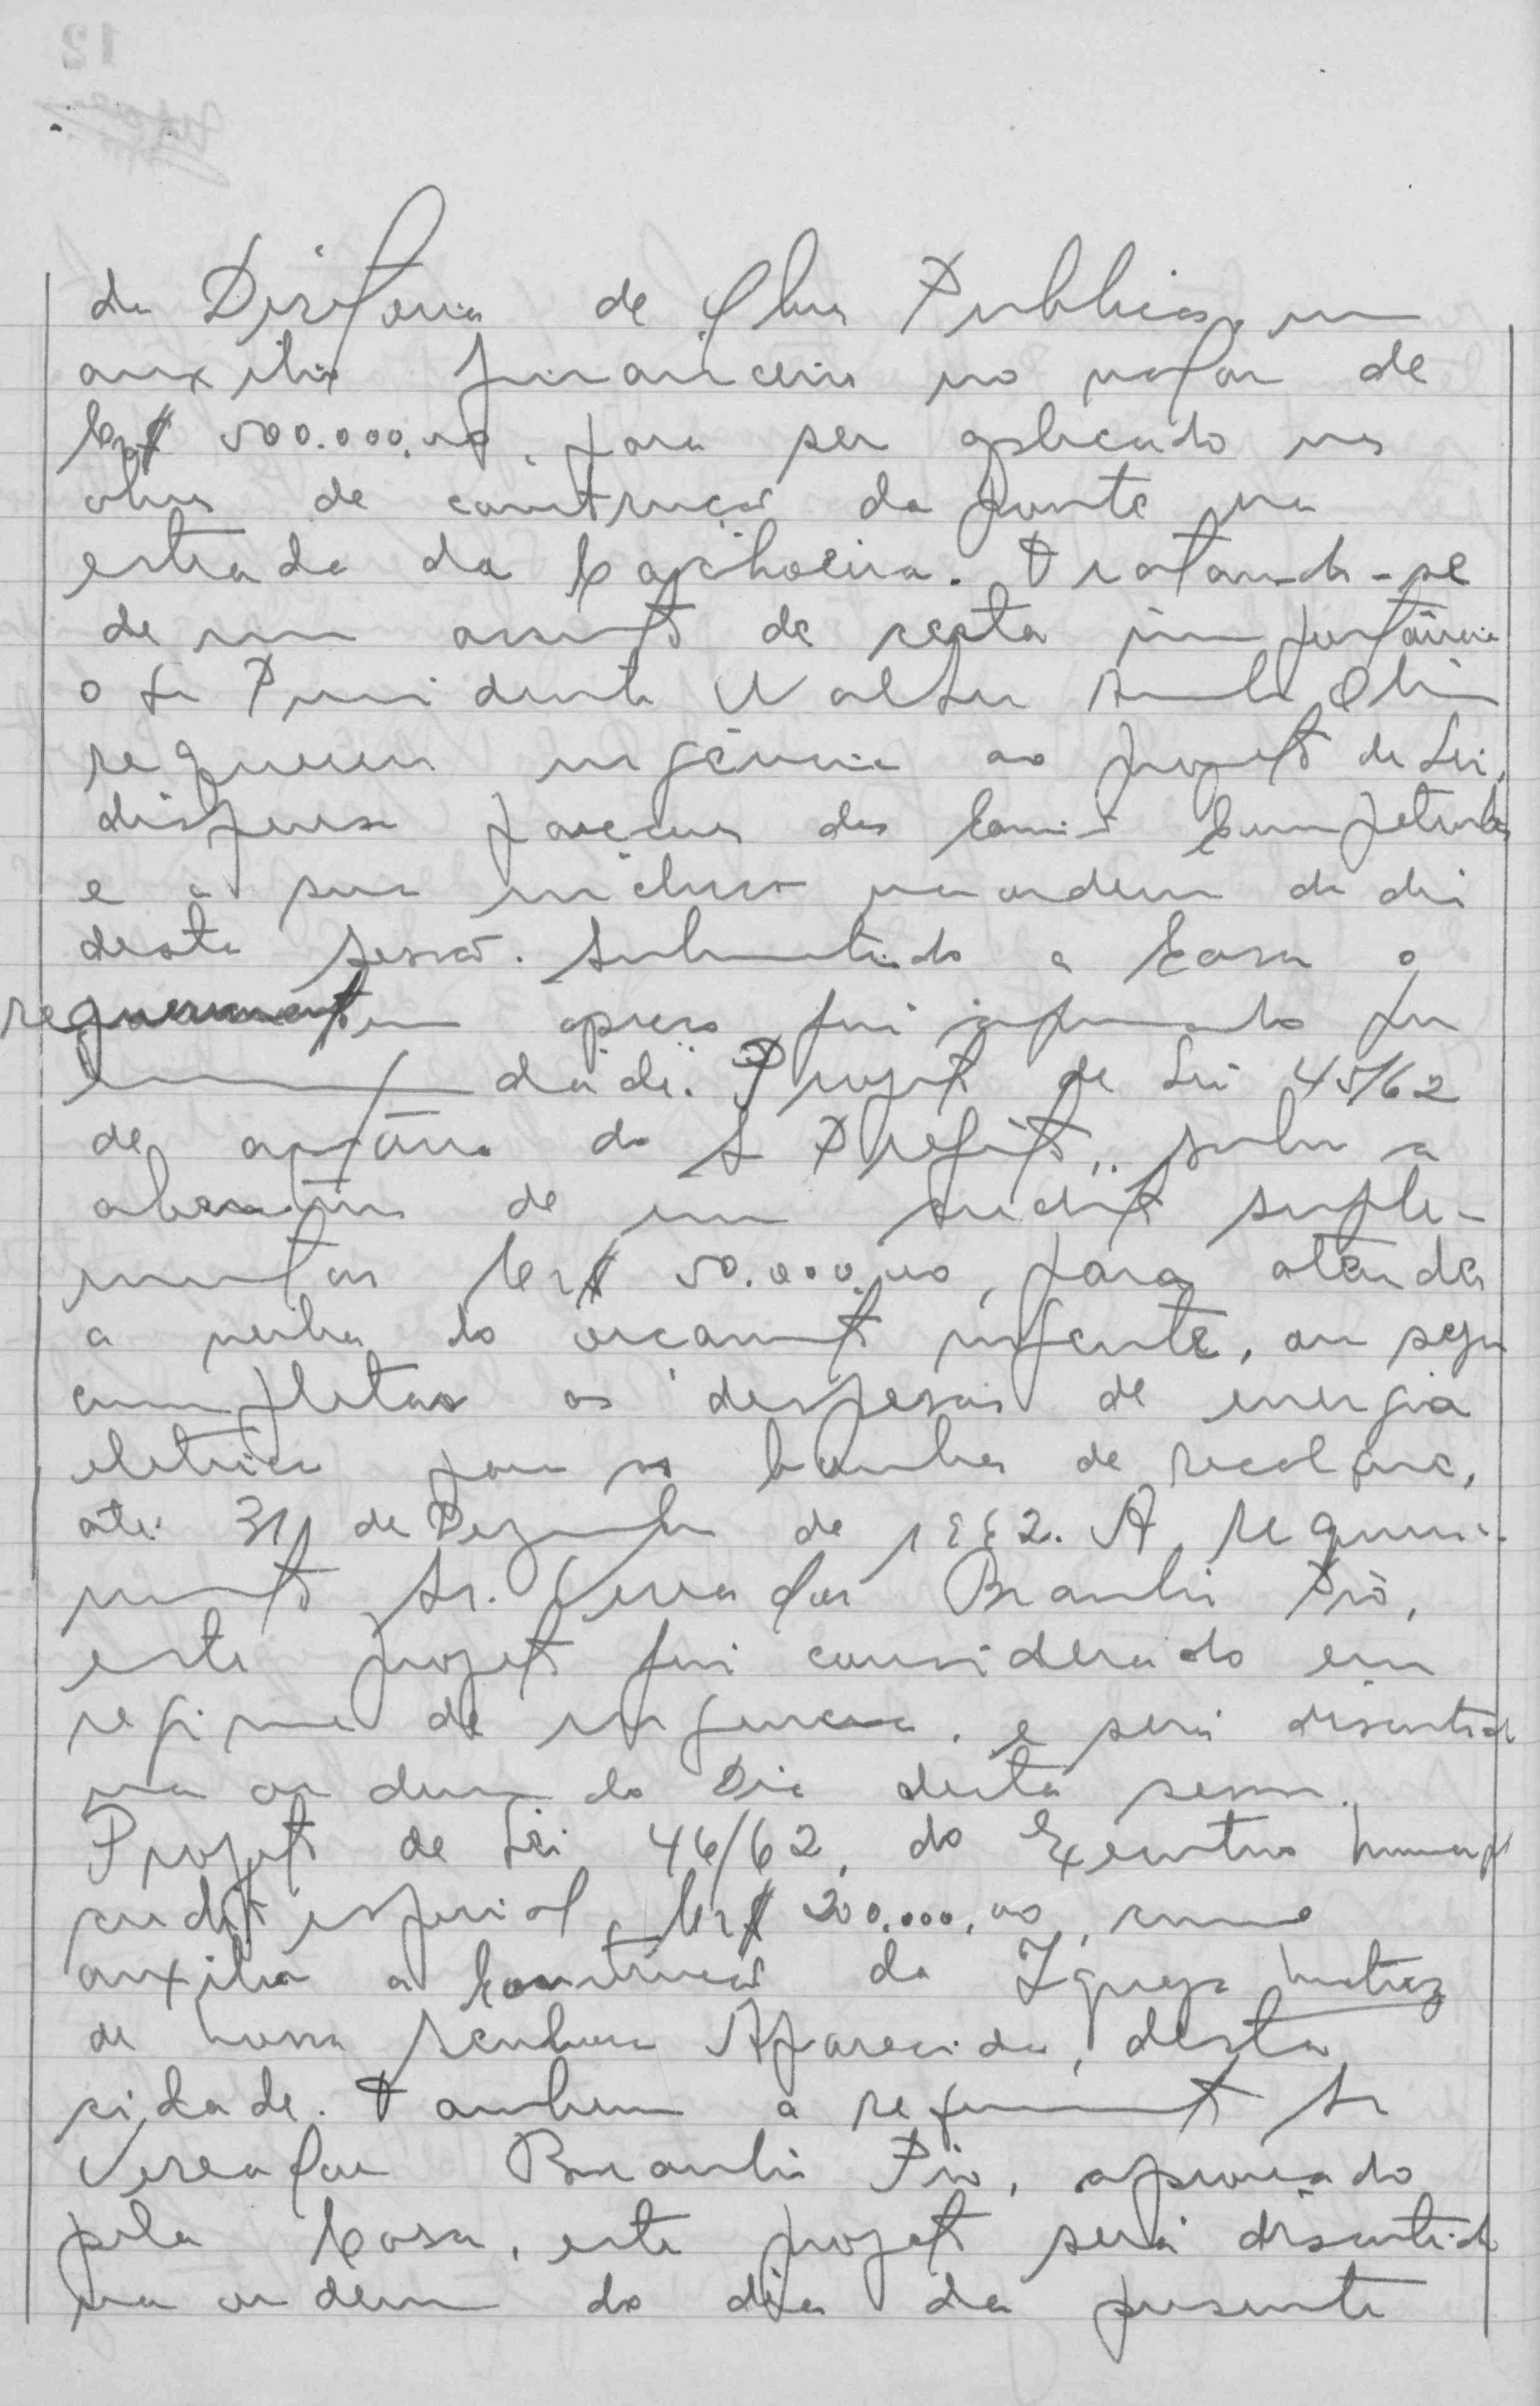 da Diretoria de Obras Publicas, um
auxilio financeiro no valor de
Cr$ 500.000,00, para ser aplicado nas
obras de construção da ponte na
estrada da Cachoeira. Tratando-se
de um assunto de certa importância
o Sr Presidente Walter
requereu urgência ao projeto de Lei,
dispensa pareceres das Comis Competentes
e a sua inclusão na ordem do dia
desta sessão. Submetido a Casa o
requerimento em apreço foi aprovado por
unanimidade. Projeto de Lei 45/62
de autoria do Sr Prefeito, sobre a
abertura de um credito suple-
mentar Cr$ 50.000,00, para atender
a verba do orçamento vigente, ou seja
completar as despesas de energia
eletrica para as bombas de recalque,
ate 31 de Dezembro de 1962. A requeri-
mento Sr. Vereador Braulio Pio,
este projeto foi considerado em
regime de urgencia, e será discutido
na ordem do Dia desta sessão.
Projeto de Lei 46/62, do Executivo
credito especial, Cr$ 200.000,00, como
auxilio a Construção da Igreja Matriz
de Nossa Senhora Aparecida, desta
cidade. Tambem a requerimento Sr
Vereador Braulio Pio, aprovado
pela Casa, este projeto será discutido
na ordem do dia da presente